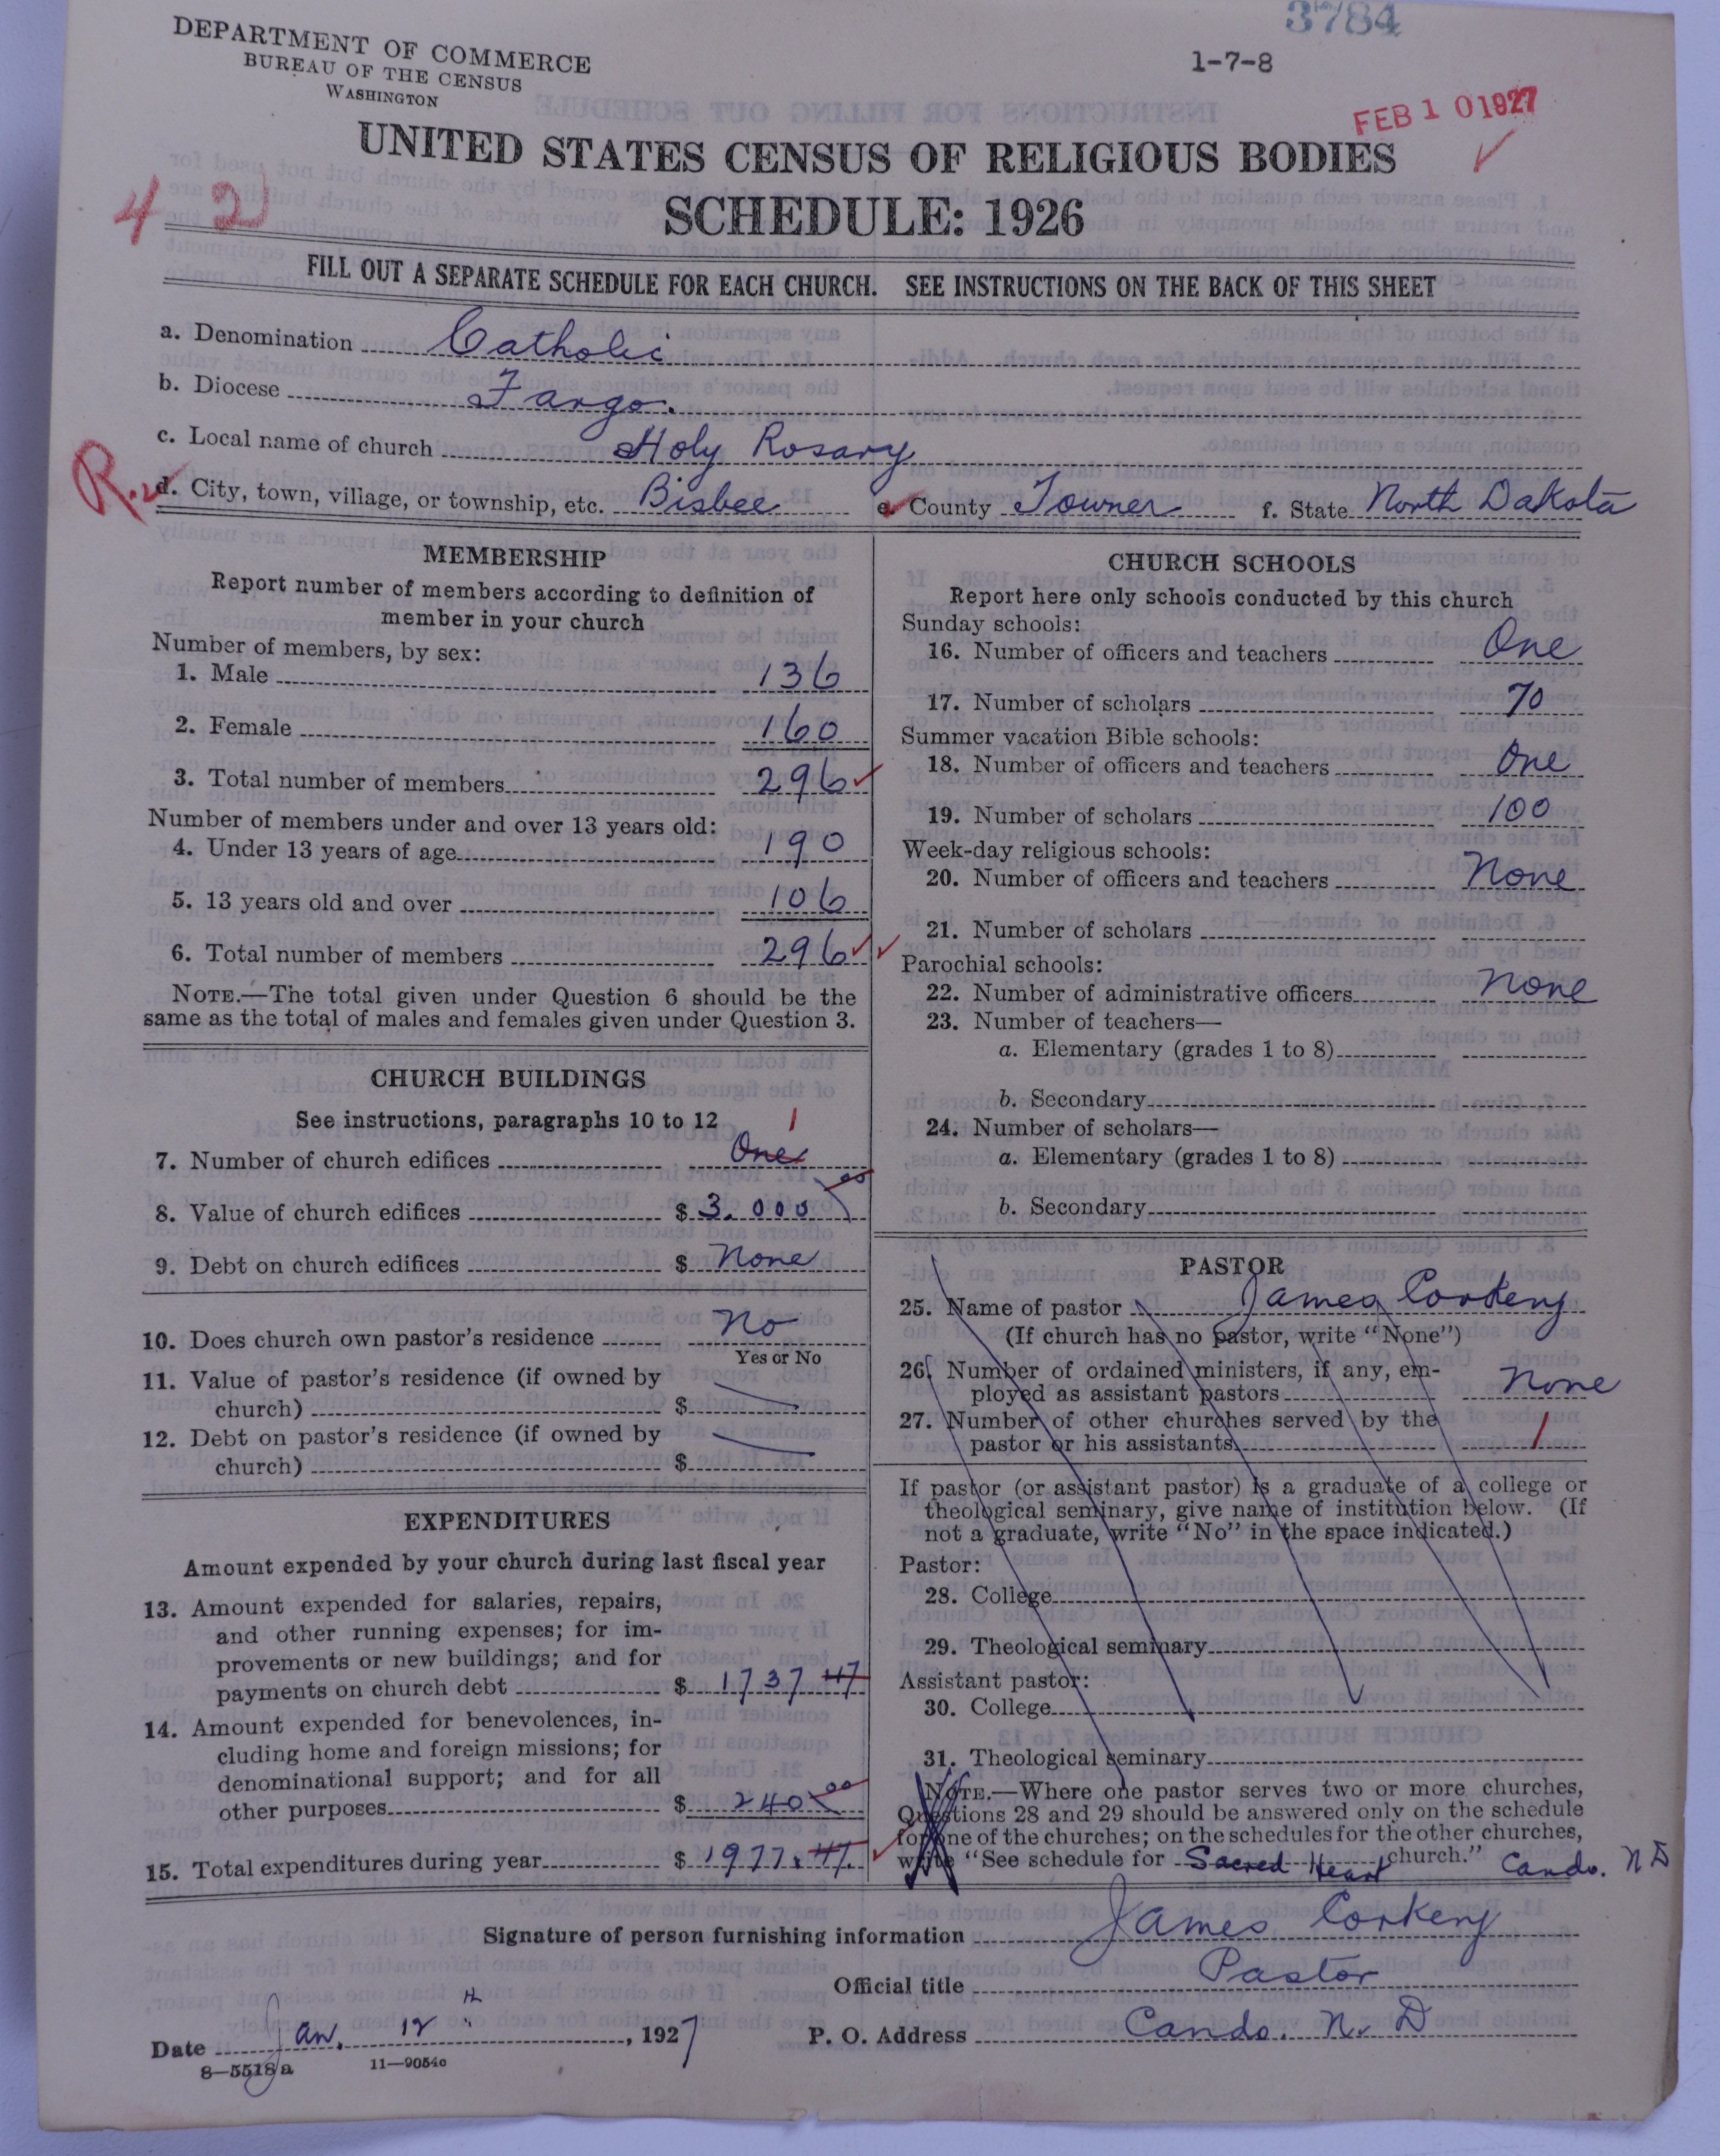 3784
DEPARTMENT OF COMMERCE
BUREAU OF THE CENSUS
WASHINGTON
1-7-8
FEB 10 1927
UNITED STATES CENSUS OF RELIGIOUS BODIES
SCHEDULE: 1926
4 2
FILL OUT A SEPARATE SCHEDULE FOR EACH CHURCH. SEE INSTRUCTIONS ON THE BACK OF THIS SHEET
a. Denomination Catholic
b. Diocese Fargo.
c. Local name of church Holy Rosary
R.
d. City, town, village, or township, etc. Bisbee e. County Towner f. State North Dakota
MEMBERSHIP
Report number of members according to definition of
member in your church
Number of members, by sex:
1. Male 136
2. Female 160
3. Total number of members 296
Number of members under and over 13 years old:
4. Under 13 years of age 190
5. 13 years old and over 106
6. Total number of members 296
NOTE.—The total given under Question 6 should be the
same as the total of males and females given under Question 3.
CHURCH BUILDINGS
See instructions, paragraphs 10 to 12
1
7. Number of church edifices One
8. Value of church edifices $ 3.000 00
9. Debt on church edifices $ None
10. Does church own pastor's residence No
Yes or No
11. Value of pastor's residence (if owned by
church) $
12. Debt on pastor's residence (if owned by
church) $
EXPENDITURES
Amount expended by your church during last fiscal year
13. Amount expended for salaries, repairs,
and other running expenses; for im-
provements or new buildings; and for
payments on church debt $ 1737 47
14. Amount expended for benevolences, in-
cluding home and foreign missions; for
denominational support; and for all
other purposes $ 240 00
15. Total expenditures during year $ 1977.47
CHURCH SCHOOLS
Report here only schools conducted by this church
Sunday schools:
16. Number of officers and teachers One
17. Number of scholars 70
Summer vacation Bible schools:
18. Number of officers and teachers One
19. Number of scholars 100
Week-day religious schools:
20. Number of officers and teachers None
21. Number of scholars
Parochial schools:
22. Number of administrative officers None
23. Number of teachers—
a. Elementary (grades 1 to 8)
b. Secondary
24. Number of scholars—
a. Elementary (grades 1 to 8)
b. Secondary
PASTOR
25. Name of pastor James Corkery
(If church has no pastor, write "None")
26. Number of ordained ministers, if any, em-
ployed as assistant pastors None
27. Number of other churches served by the
pastor or his assistants 1
If pastor (or assistant pastor) is a graduate of a college or
theological seminary, give name of institution below. (If
not a graduate, write "No" in the space indicated.)
Pastor:
28. College
29. Theological seminary
Assistant pastor:
30. College
31. Theological seminary
NOTE.—Where one pastor serves two or more churches,
Questions 28 and 29 should be answered only on the schedule
for one of the churches; on the schedules for the other churches,
write "See schedule for Sacred Heart church." Cando. N D
Signature of person furnishing information James Corkery
Official title Pastor
Date Jan. 12th, 1927 P. O. Address Cando. N. D
8—5518a 11—9054c